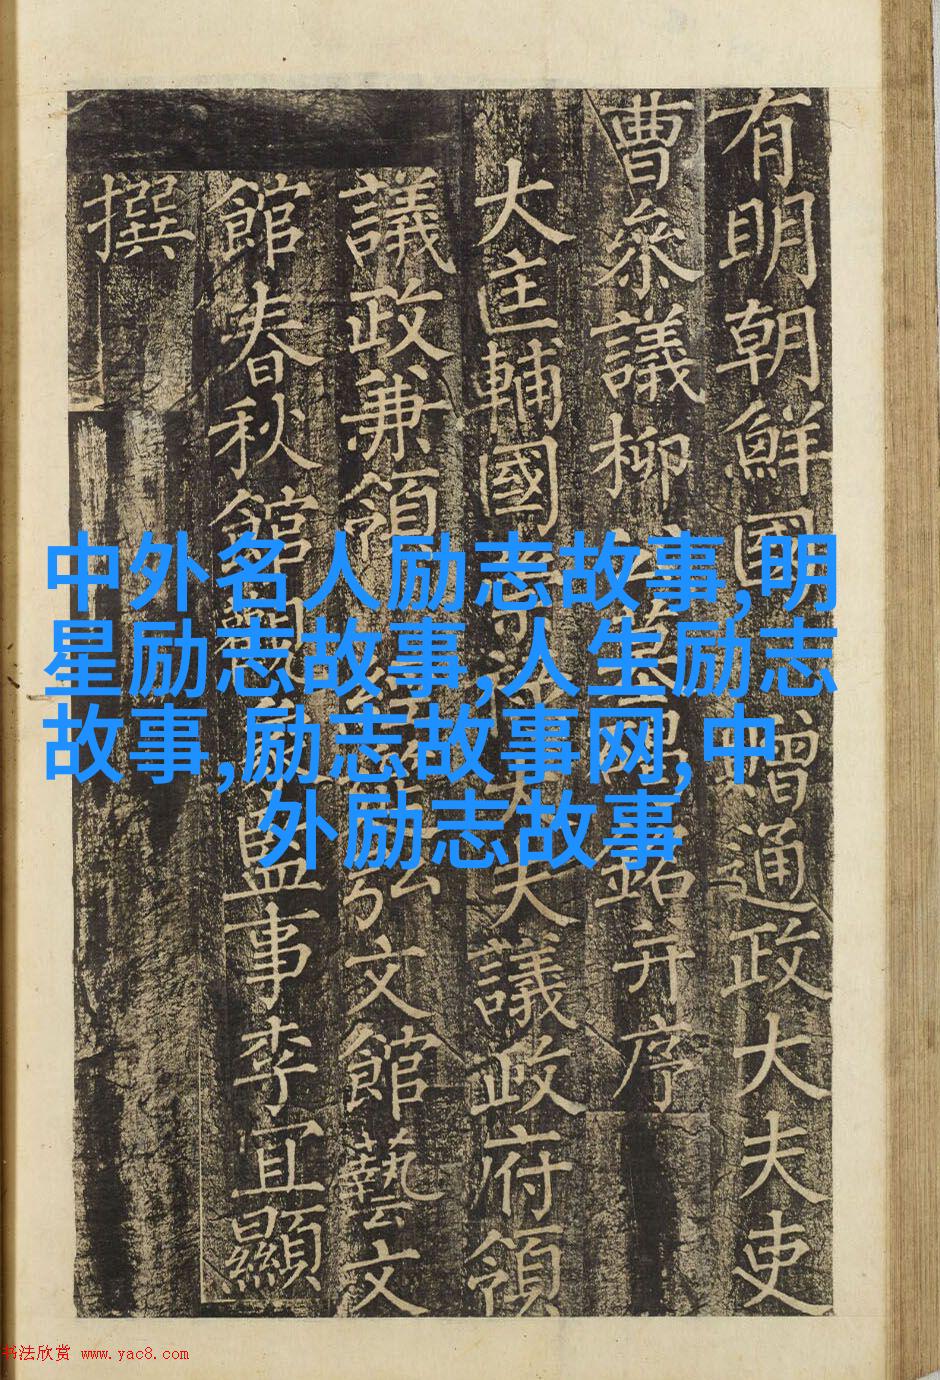 有明朝鮮國贈通政大夫吏
曹叅議柳墓碣銘并序
大匡輔國崇祿大夫議政府領
議政兼領經筵弘文館藝文
館春秋館觀象監事李宜顯
撰
中外名人励志故事,明
星励志故事,人生励志
故事,励志故事网,中
外励志故事
书法欣赏 www.yac8.com